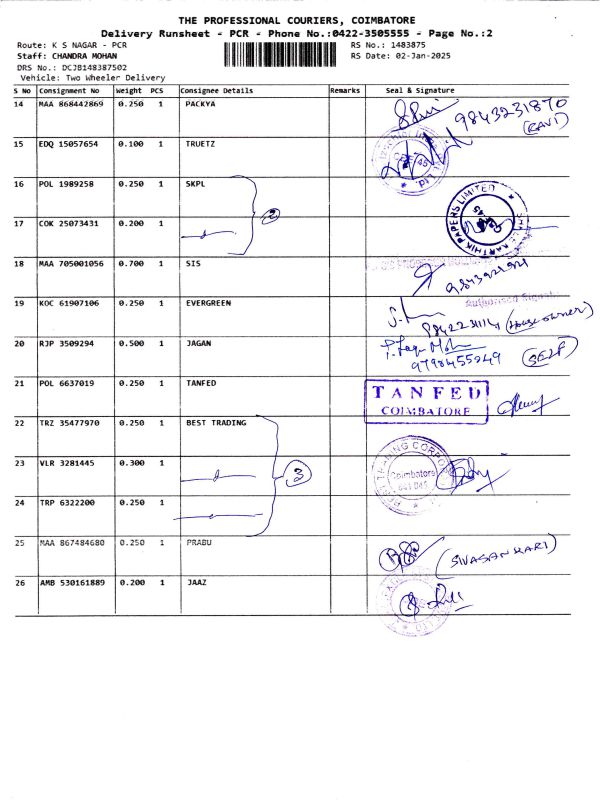 THE PROFESSIONAL COURIERS, COIMBATORE
Delivery Runsheet - PCR - Phone No.:0422-3505555 - Page No.:2
Route: K S NAGAR - PCR RS No.: 1483875
Staff: CHANDRA MOHAN RS Date: 02-Jan-2025
DRS No.: DCJB148387502
Vehicle: Two Wheeler Delivery
S No Consignment No Weight PCS Consignee Details Remarks Seal & Signature
14 MAA 868442869 0.250 1 PACKYA 9843231870
(RAVI)
15 EDQ 15057654 0.100 1 TRUETZ
16 POL 1989258 0.250 1 SKPL 2 KARTHIK PAPERS LIMITED
17 COK 25073431 0.200 1
18 MAA 705001056 0.700 1 SIS
19 KOC 61907106 0.250 1 EVERGREEN (House owner)
20 RJP 3509294 0.500 1 JAGAN (SELF)
21 POL 6637019 0.250 1 TANFED TANFED
COIMBATORE
22 TRZ 35477970 0.250 1 BEST TRADING
23 VLR 3281445 0.300 1 3 Coimbatore
24 TRP 6322200 0.250 1
25 MAA 867484680 0.250 1 PRABU (SIVASANKARI)
26 AMB 530161889 0.200 1 JAAZ